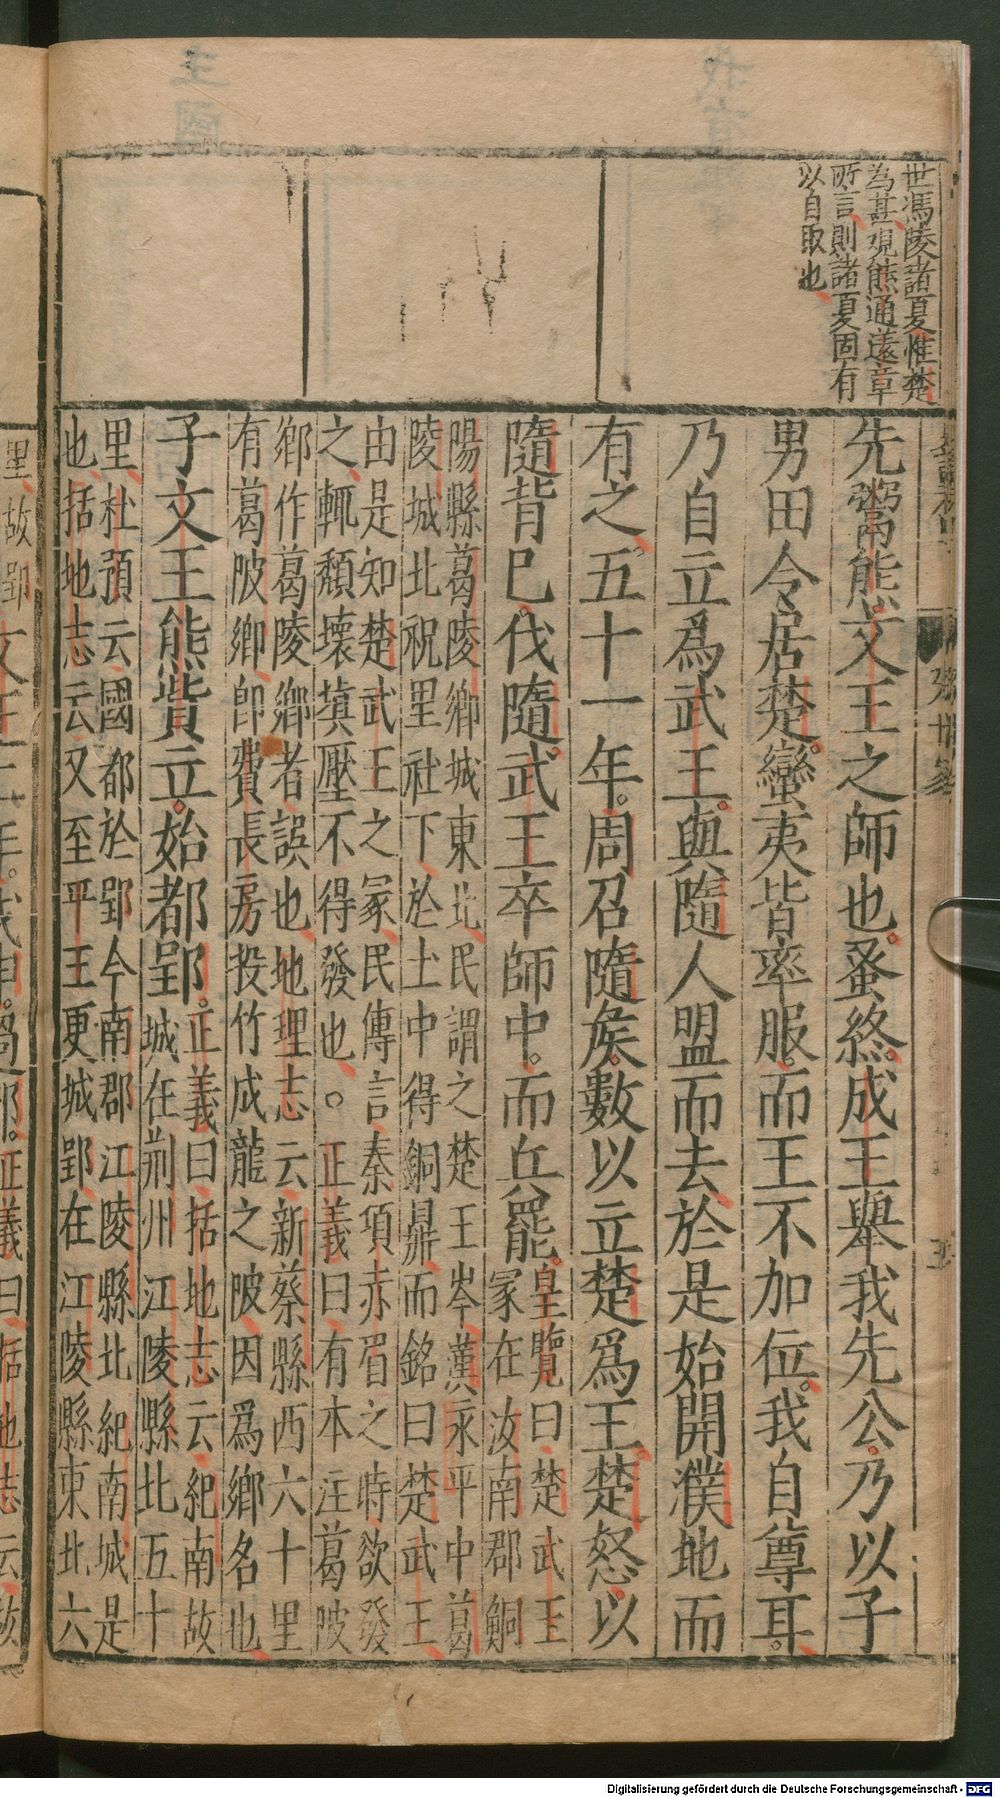 世馮陵諸夏惟楚
為甚觀熊通蓫章
所言則諸夏固有
以自取也
先鬻熊文王之師也。蚤終。成王舉我先公。乃以子
男田令居楚。蠻夷皆率服。而王不加位。我自尊耳。
乃自立爲武王。與隨人盟而去、於是始開濮地而
有之。五十一年。周召隨矦。數以立楚爲王、楚怒。以
隨背已。伐隨。武王卒師中。而兵罷。皇覽曰、楚武王
冢在汝南郡鮦
陽縣葛陵鄉城東北、民謂之楚王岑、漢永平中葛
陵城北祝里社下、於土中得銅鼎、而銘曰楚武王、
由是知楚武王之冢、民傳言、秦項赤眉之時欲發
之、輒頽壞塡壓不得發也、○正義曰、有本注葛陂
鄉作葛陵鄉者、誤也、地理志云、新蔡縣西六十里
有葛陂鄉、卽費長房投竹成龍之陂、因爲鄉名也、
子文王熊貲立。始都郢。正義曰、括地志云、紀南故
城在荆州江陵縣北五十
里、杜預云、國都於郢、今南郡江陵縣北紀南城是
也、括地志云、又至平王更城郢、在江陵縣東北六
里、故郢
文王二年。伐申。過鄧。正義曰、括地志云、故
Digitalisierung gefördert durch die Deutsche Forschungsgemeinschaft - DFG